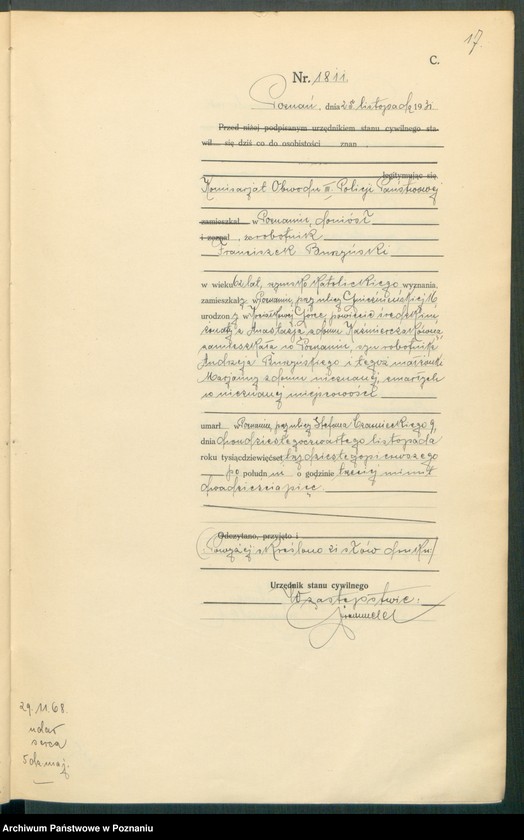 17.
C.
Nr. 1811.
Poznań, dnia 28 listopada 1931
Przed niżej podpisanym urzędnikiem stanu cywilnego sta-
wił się dziś co do osobistości znan
legitymując się
Komisarjat Obwodu III. Policji Państwowej
zamieszkał w Poznaniu, doniósł
i zeznał, że robotnik
Franciszek Burzyński
w wieku lat, rzymsko katolickiego wyznania,
zamieszkały w Poznaniu, przy ulicy Gnieźnieńskiej 16,
urodzony w Górce, powiecie średzkim,
żonaty z Anastazją z domu
zamieszkałą w Poznaniu, syn robotnika
Andrzeja Burzyńskiego i tegoż małżonki
Marjanny z domu nieznanej, zmarłych
w nieznanej miejscowości
umarł w Poznaniu, przy ulicy Stefana Czarnieckiego 9,
dnia dwudziestegoczwartego listopada
roku tysiącdziewięćset trzydziestegopierwszego
po południu o godzinie trzeciej minut
dwadzieścia pięć.
Odczytano, przyjęto i
Powyżej skreślono 21 słów druku.
Urzędnik stanu cywilnego
W zastępstwie.
29.11.68.
udar
serca
Archiwum Państwowe w Poznaniu
szukajwarchiwach.gov.pl